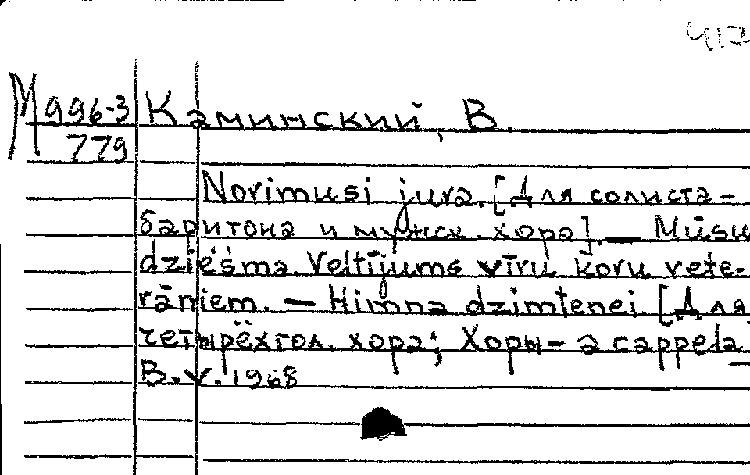 417
М 996-3 Каминский, В.
779
Norimusi jūra. [Для солиста-
баритона и мужск. хора]. — Mūsu
dziesma. Veltījums vīru koru vete-
rāniem. — Himna dzimtenei [Для
четырёхгол. хора; Хоры- a cappela
B.v. 1968